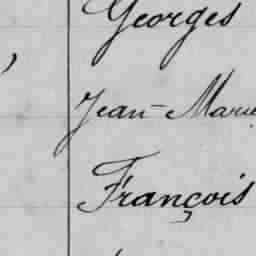 Georges
Jean-Marie
François